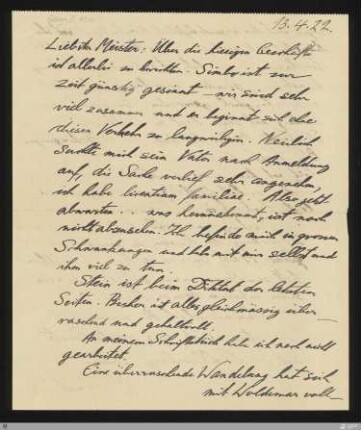 13.4.22.
Liebster Meister: Über die hiesigen Geschäfte
ist allerlei zu berichten. Simbo ist zur
Zeit günstig gesonnt – wir sind sehr
viel zusammen und er beginnt sich
diesen Verkehr zu Neulich
suchte mich sein Vater nach Anmeldung
auf, die Sache verlief sehr angenehm,
ich habe licentiam familiae. Also jetzt
abwarten .. was herauskommt, ist noch
nicht abzusehen. Ich befinde mich in grossen
Schwankungen und habe mit mir selbst und
ihm viel zu tun.
Stein ist beim Diktat der letzten
Seiten. Bisher ist alles gleichmässig über-
raschend und gehaltvoll.
An meinem habe ich noch nicht
gearbeitet.
Eine überraschende Wandelung hat sich
mit Woldemar voll-